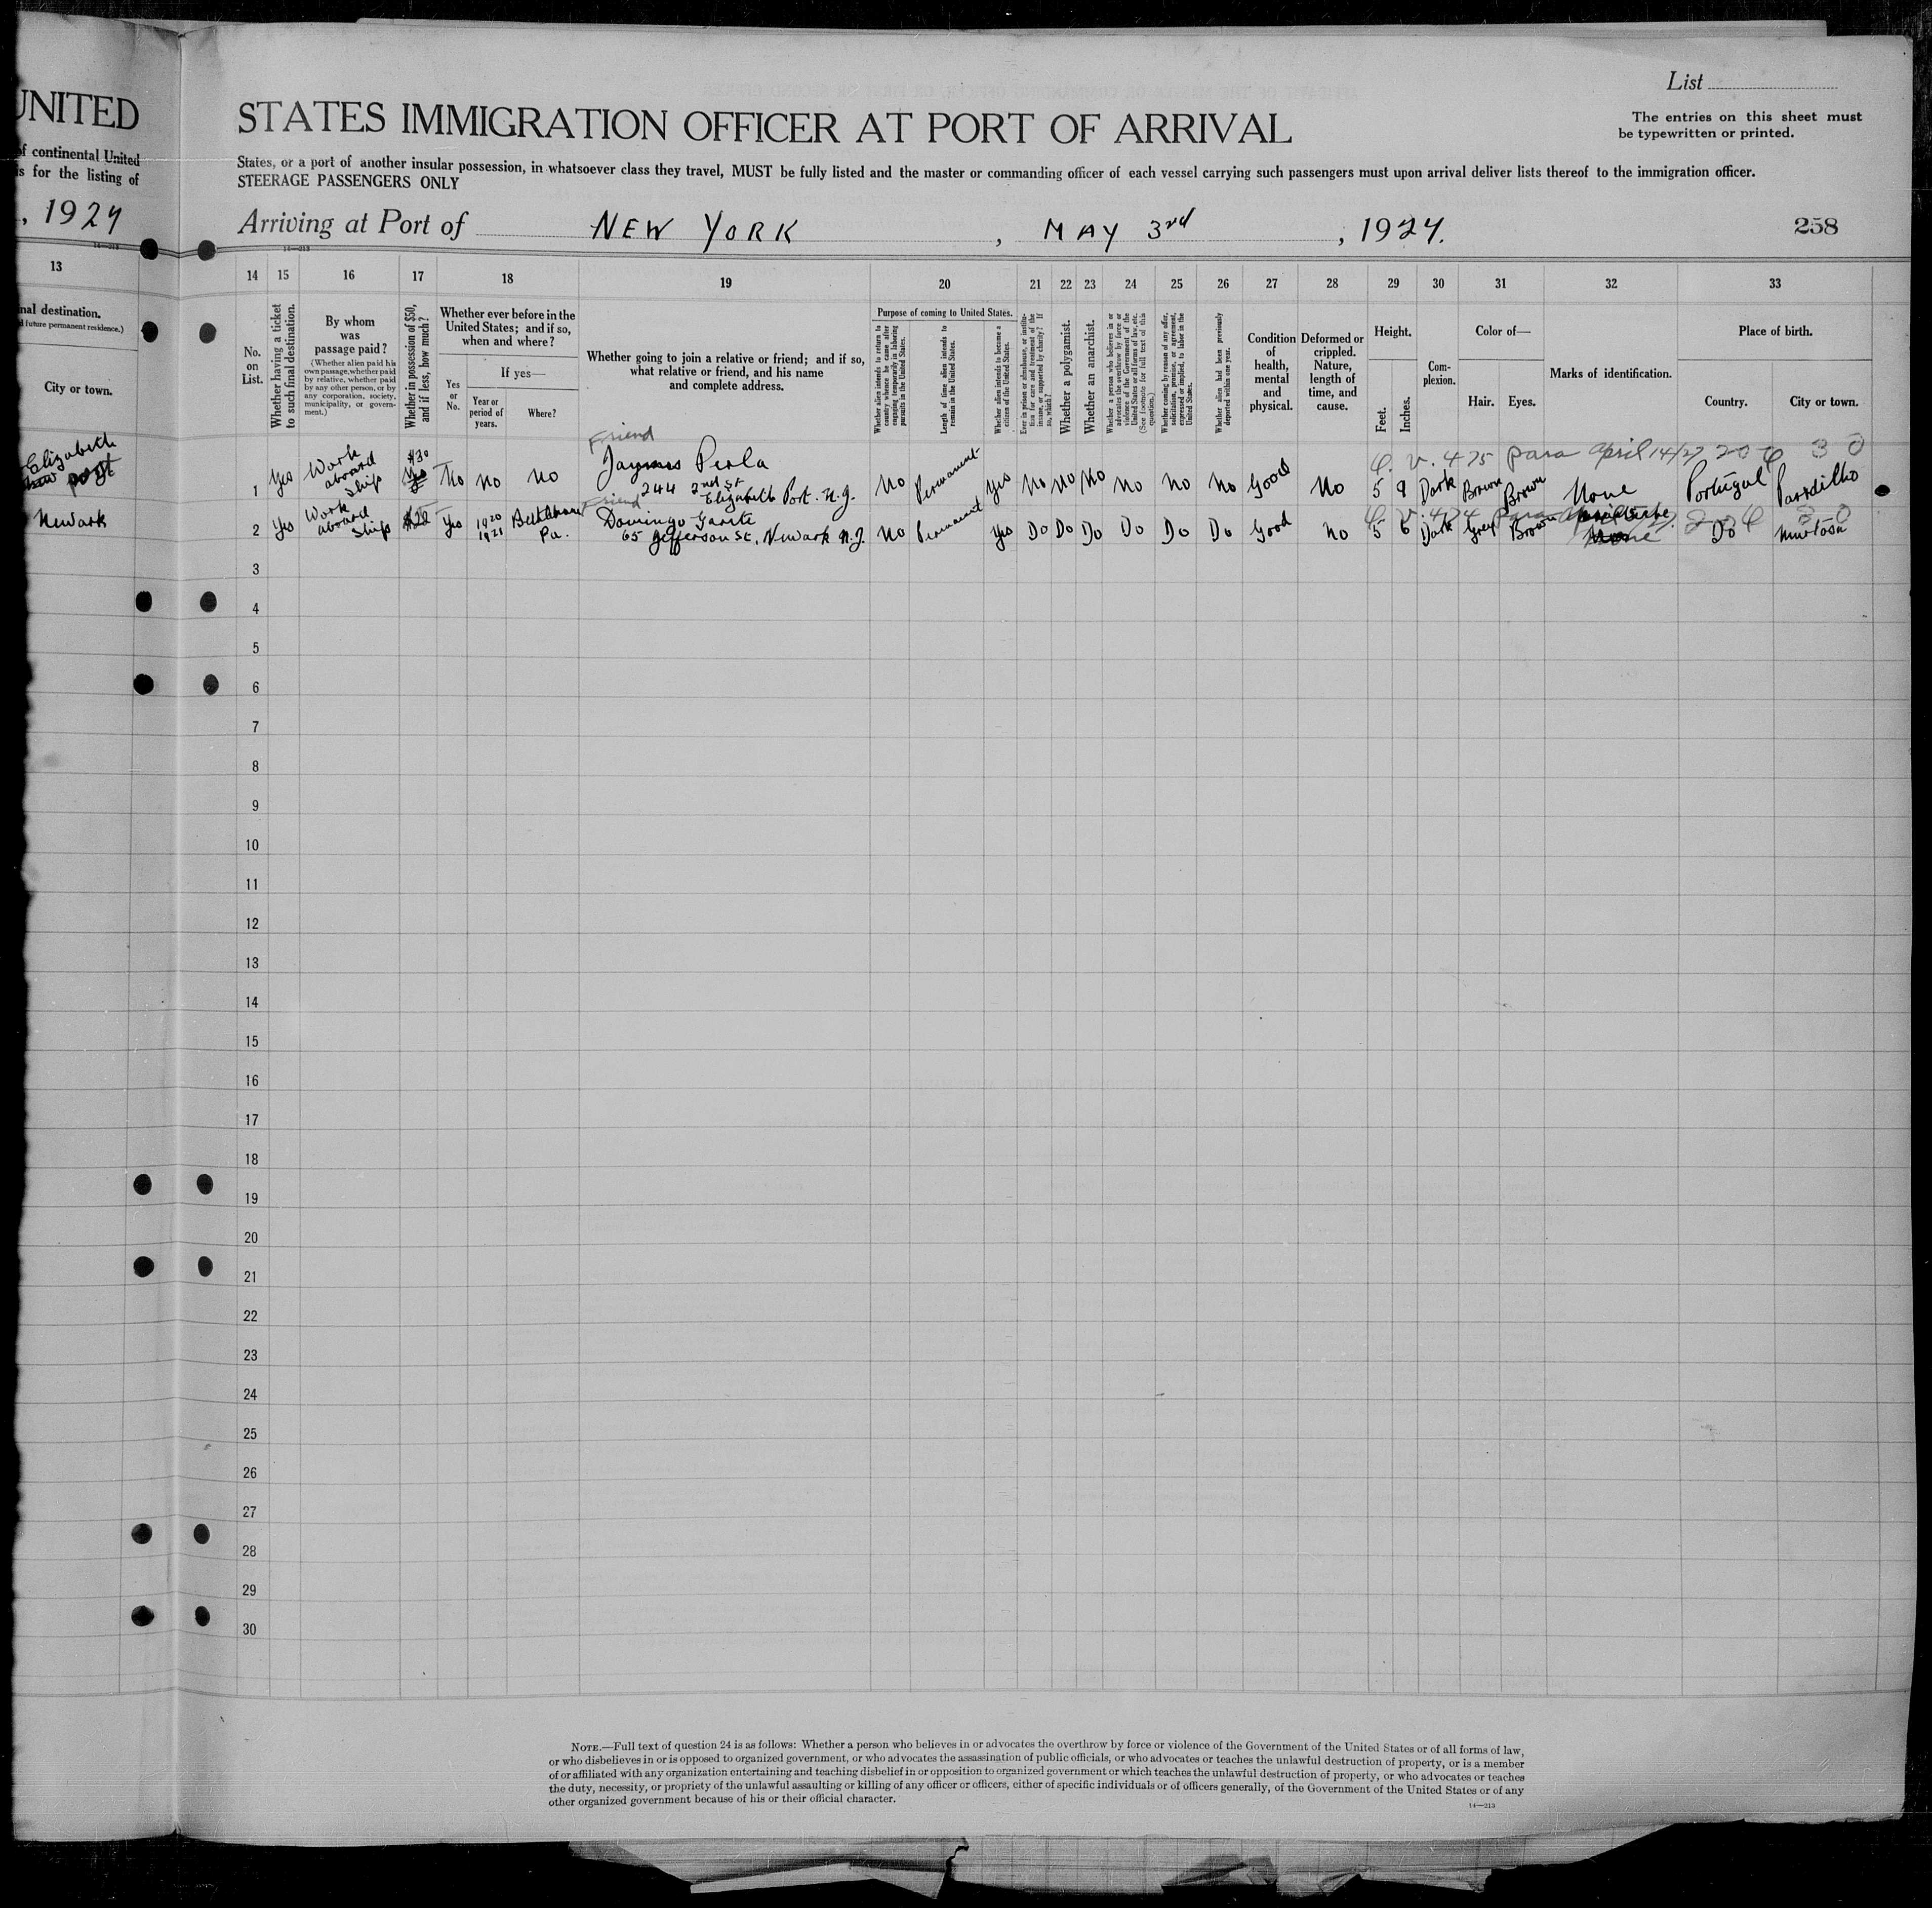 UNITED
of continental United
is for the listing of
, 1924
14—213
13
nal destination.
d future permanent residence.)
City or town.
Elizabeth
port
Newark
List
The entries on this sheet must
be typewritten or printed.
STATES IMMIGRATION OFFICER AT PORT OF ARRIVAL
States, or a port of another insular possession, in whatsoever class they travel, MUST be fully listed and the master or commanding officer of each vessel carrying such passengers must upon arrival deliver lists thereof to the immigration officer.
STEERAGE PASSENGERS ONLY
Arriving at Port of NEW YORK , MAY 3rd , 1924. 258
14—213
14 15 16 17 18 19 20 21 22 23 24 25 26 27 28 29 30 31 32 33
No. on List.
Whether having a ticket to such final destination.
By whom was passage paid?
(Whether alien paid his own passage, whether paid by relative, whether paid by any other person, or by any corporation, society, municipality, or government.)
Whether in possession of $50, and if less, how much?
Whether ever before in the United States; and if so, when and where?
Yes or No.
If yes—
Year or period of years.
Where?
Whether going to join a relative or friend; and if so, what relative or friend, and his name and complete address.
Purpose of coming to United States.
Whether alien intends to return to country whence he came after engaging temporarily in laboring pursuits in the United States.
Length of time alien intends to remain in the United States.
Whether alien intends to become a citizen of the United States.
Ever in prison or almshouse, or institution for care and treatment of the insane, or supported by charity? If so, which?
Whether a polygamist.
Whether an anarchist.
Whether a person who believes in or advocates the overthrow by force or violence of the Government of the United States or all forms of law, etc. (See footnote for full text of this question.)
Whether coming by reason of any offer, solicitation, promise, or agreement, expressed or implied, to labor in the United States.
Whether alien had been previously deported within one year.
Condition of health, mental and physical.
Deformed or crippled. Nature, length of time, and cause.
Height.
Feet.
Inches.
Complexion.
Color of—
Hair.
Eyes.
Marks of identification.
Place of birth.
Country.
City or town.
Friend
Q. V. 475 para April 14/27
1 Yes Work aboard ship $30 Yes No no no Perla 244 2nd St Elizabeth Port. N.J. No Permanent Yes No No No No No No Good No 5 9 Dark Brown Brown None Portugal
Friend
Q. V. 474 para
2 Yes Work aboard ship $20 Yes 1920 1921 Pa. Domingo 65 Jefferson St, Newark N.J. No Permanent Yes Do Do Do Do Do Do Good No 5 6 Dark Grey Brown None Do
3
4
5
6
7
8
9
10
11
12
13
14
15
16
17
18
19
20
21
22
23
24
25
26
27
28
29
30
NOTE.—Full text of question 24 is as follows: Whether a person who believes in or advocates the overthrow by force or violence of the Government of the United States or of all forms of law,
or who disbelieves in or is opposed to organized government, or who advocates the assassination of public officials, or who advocates or teaches the unlawful destruction of property, or is a member
of or affiliated with any organization entertaining and teaching disbelief in or opposition to organized government or which teaches the unlawful destruction of property, or who advocates or teaches
the duty, necessity, or propriety of the unlawful assaulting or killing of any officer or officers, either of specific individuals or of officers generally, of the Government of the United States or of any
other organized government because of his or their official character.
14—213